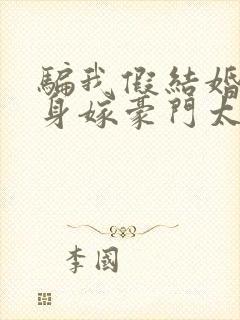 騙我假結婚
身嫁豪門太
李國